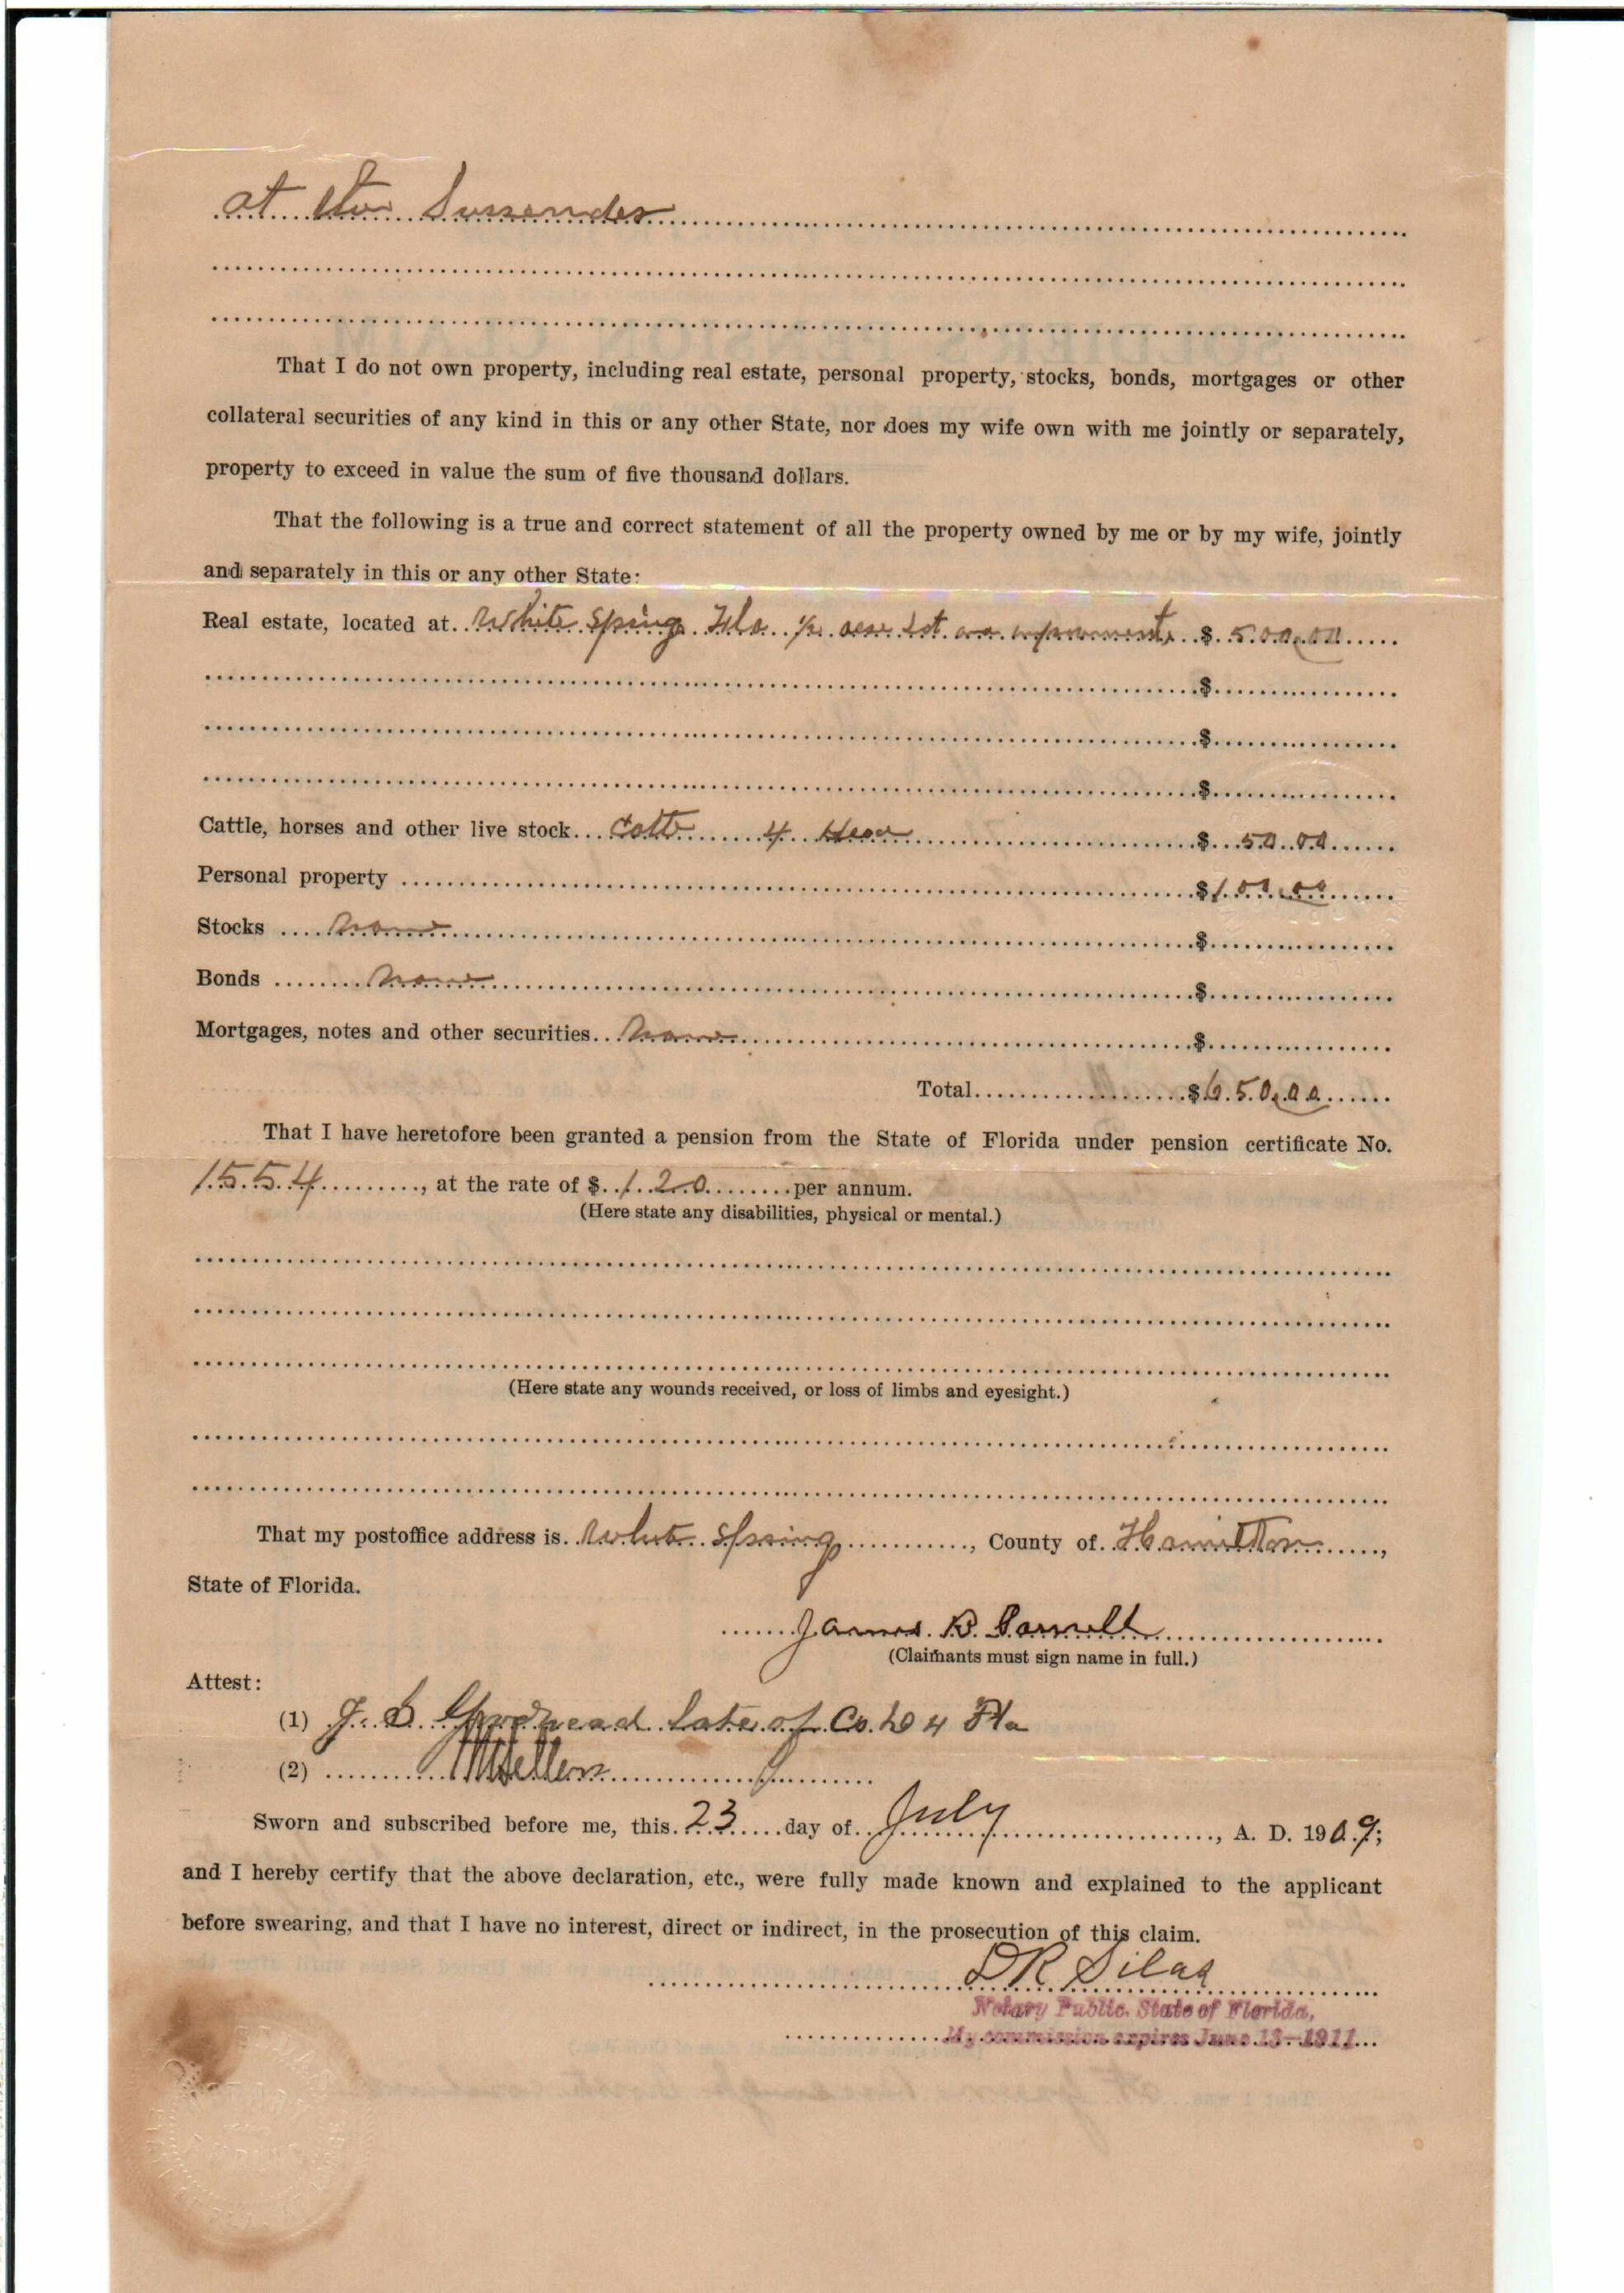 at the Surrender
That I do not own property, including real estate, personal property, stocks, bonds, mortgages or other
collateral securities of any kind in this or any other State, nor does my wife own with me jointly or separately,
property to exceed in value the sum of five thousand dollars.
That the following is a true and correct statement of all the property owned by me or by my wife, jointly
and separately in this or any other State:
Real estate, located at White Spring Fla. 1/2 acre lot improvements $ 500.00
$
$
$
Cattle, horses and other live stock 4 Head $ 50.00
Personal property $ 100.00
Stocks None $
Bonds None $
Mortgages, notes and other securities None $
Total $ 650.00
That I have heretofore been granted a pension from the State of Florida under pension certificate No.
1554, at the rate of $ 120 per annum.
(Here state any disabilities, physical or mental.)
(Here state any wounds received, or loss of limbs and eyesight.)
That my postoffice address is White Spring, County of Hamilton,
State of Florida.
James B.
(Claimants must sign name in full.)
Attest:
(1) J. late of Co. 4 Fla
(2)
Sworn and subscribed before me, this 23 day of July, A. D. 1909;
and I hereby certify that the above declaration, etc., were fully made known and explained to the applicant
before swearing, and that I have no interest, direct or indirect, in the prosecution of this claim.
D R Silas
Notary Public. State of Florida,
My commission expires June 13-1911